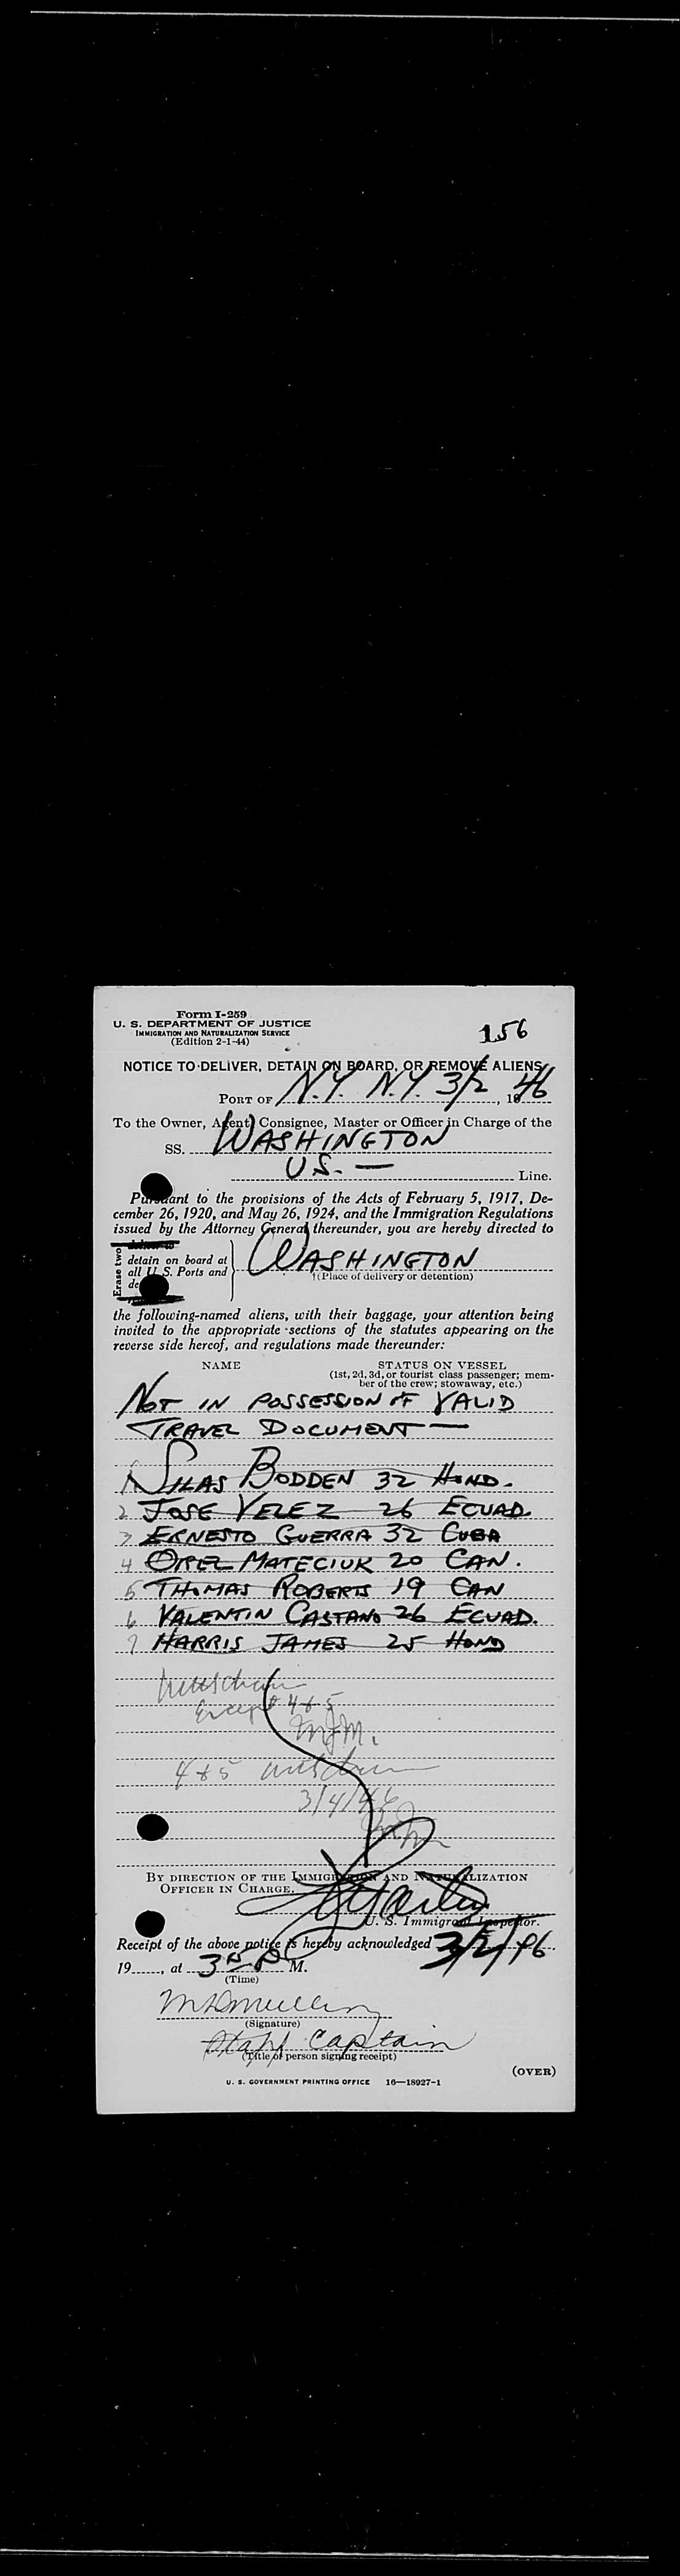 Form I-259
U. S. DEPARTMENT OF JUSTICE
IMMIGRATION AND NATURALIZATION SERVICE
(Edition 2-1-44)
156
NOTICE TO DELIVER, DETAIN ON BOARD, OR REMOVE ALIENS
PORT OF N.Y. N.Y. 3/2, 1946
To the Owner, Agent, Consignee, Master or Officer in Charge of the
SS. WASHINGTON
U.S. — Line.
Pursuant to the provisions of the Acts of February 5, 1917, De-
cember 26, 1920, and May 26, 1924, and the Immigration Regulations
issued by the Attorney General thereunder, you are hereby directed to
Erase two
detain on board at
all U. S. Ports and
WASHINGTON
(Place of delivery or detention)
the following-named aliens, with their baggage, your attention being
invited to the appropriate sections of the statutes appearing on the
reverse side hereof, and regulations made thereunder:
NAME STATUS ON VESSEL
(1st, 2d, 3d, or tourist class passenger; mem-
ber of the crew; stowaway, etc.)
NOT IN POSSESSION OF VALID
TRAVEL DOCUMENT —
1 SILAS BODDEN 32 HOND.
2 JOSE VELEZ 26 ECUAD.
3 ERNESTO GUERRA 32 CUBA
4 OREL MATECIUK 20 CAN.
5 THOMAS ROBERTS 19 CAN
6 VALENTIN CASTANO 26 ECUAD.
7 HARRIS JAMES 25 HOND
Except 4 + 5
4 + 5
3/4/46
BY DIRECTION OF THE IMMIGRATION AND NATURALIZATION
OFFICER IN CHARGE.
U. S. Immigrant Inspector.
Receipt of the above notice is hereby acknowledged 3/2/46
19......, at 3 P M.
(Time)
(Signature)
Staff Captain
(Title of person signing receipt)
(OVER)
U. S. GOVERNMENT PRINTING OFFICE 16—18927-1